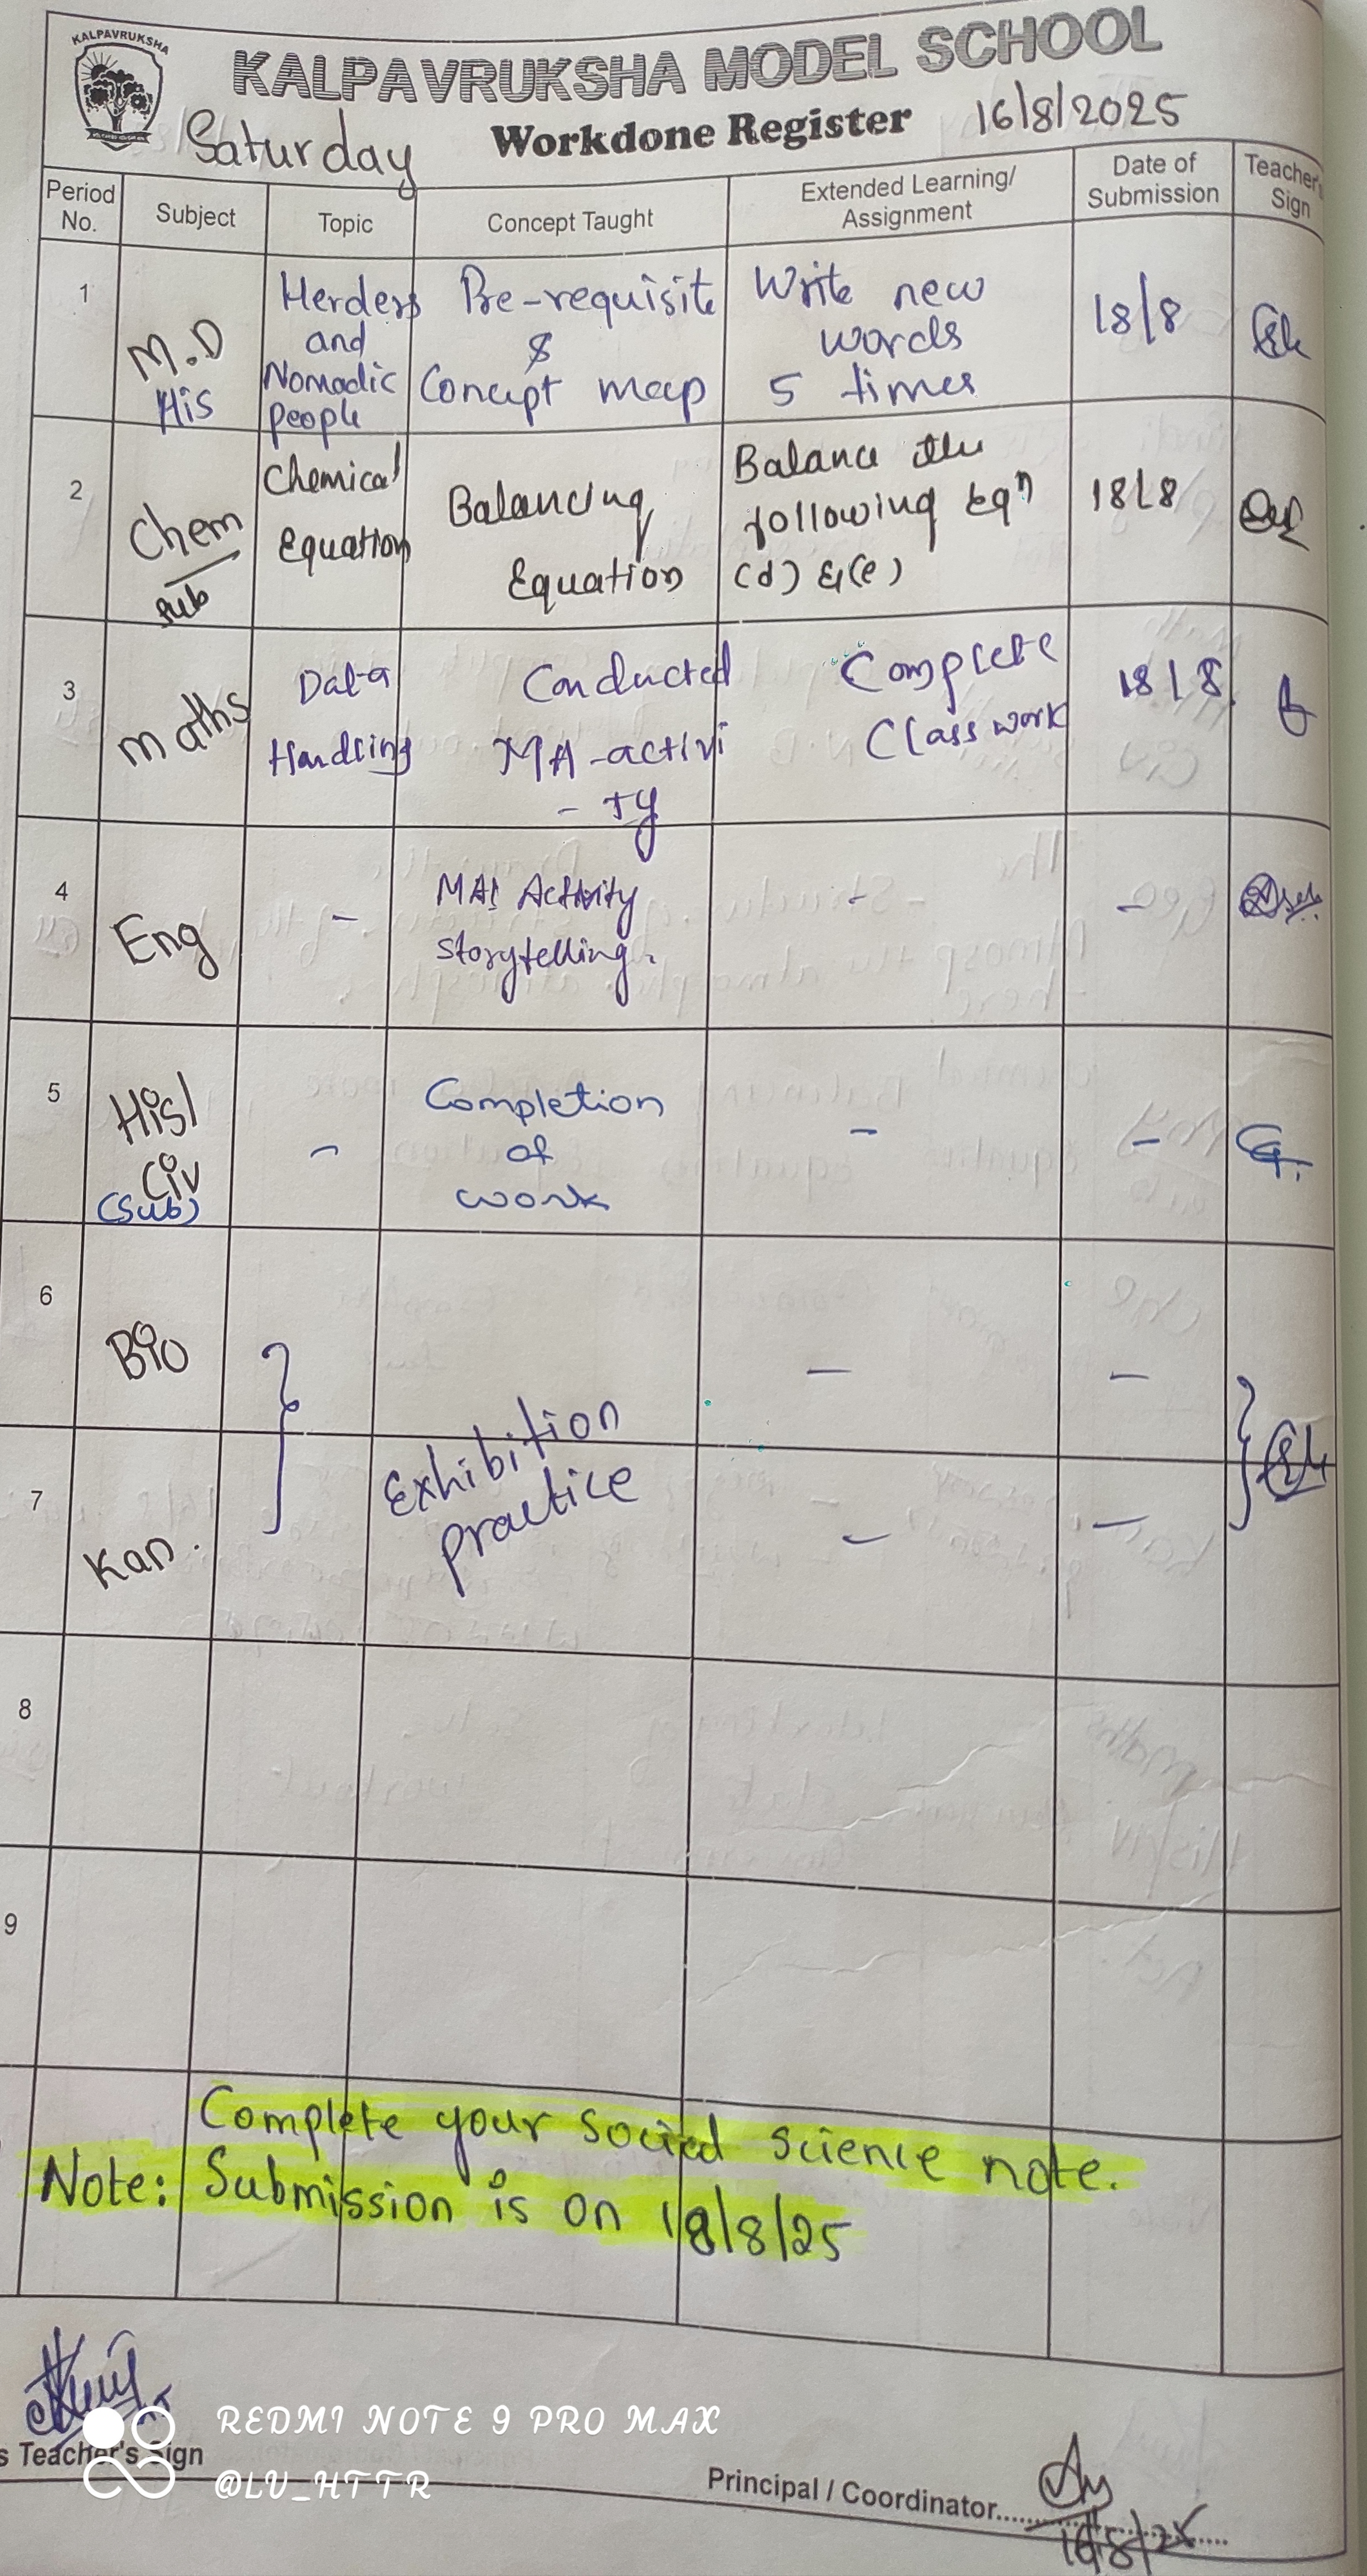 KALPAVRUKSHA
KALPAVRUKSHA MODEL SCHOOL
Saturday
Workdone Register 16/8/2025
Period No.
Subject
Topic
Concept Taught
Extended Learning/
Assignment
Date of
Submission
Teacher's
Sign
1
M.D
His
Herders
and
Nomadic
people
Pre-requisite
&
Concept map
Write new
words
5 times
18/8
2
Chem
sub
Chemical
Equation
Balancing
Equation
Balance the
following Eqn
(d) & (e)
18/8
3
maths
Data
Handling
Conducted
MA-activi
- ty
Complete
Class work
18/8
4
Eng
-
MA: Activity
storytelling.
-
-
5
His/
Civ
(Sub)
-
Completion
of
work
-
-
6
Bio
-
-
7
Kan.
Exhibition
practice
-
-
8
9
Complete your social science note.
Note: Submission is on 18/8/25
s Teacher's Sign
REDMI NOTE 9 PRO MAX
@LU_HTTR
Principal / Coordinator
16/8/25